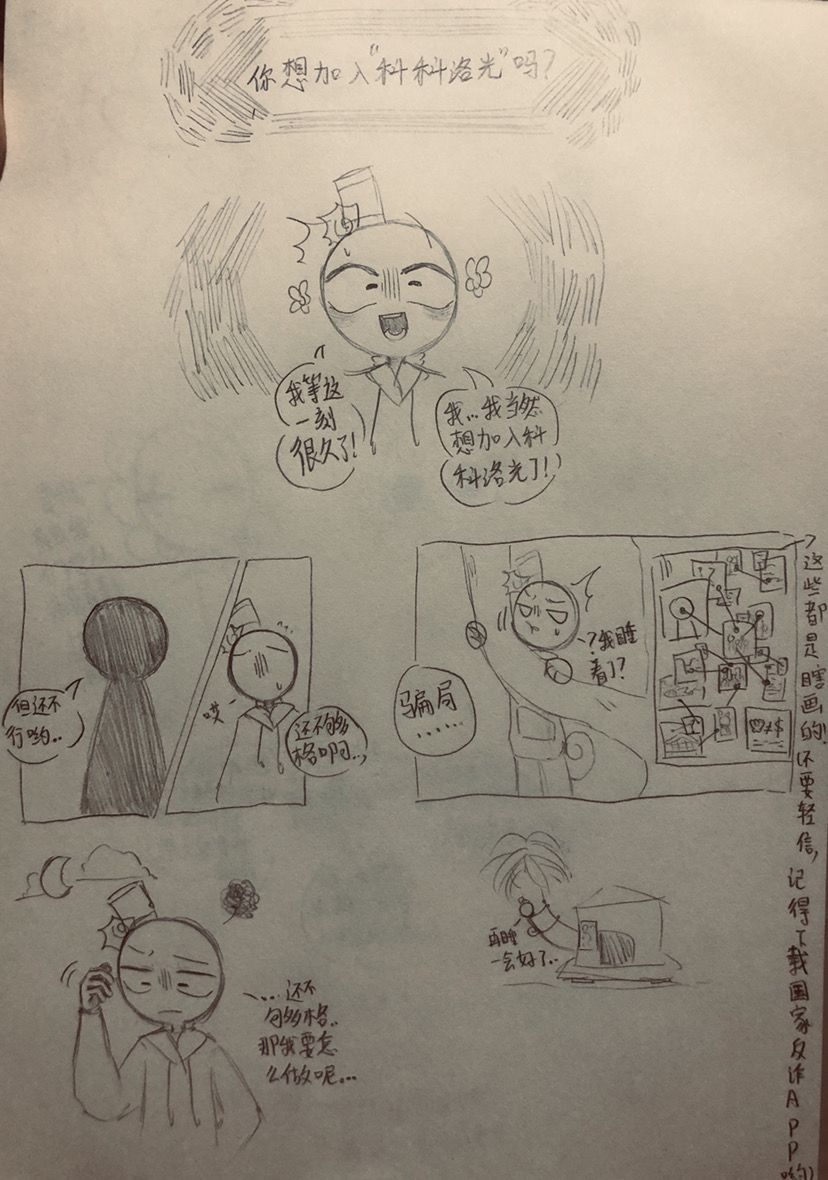 你想加入“科科洛光”吗?
我等这
一刻
很久了!
我...我当然
想加入科
科洛光了!
但还不
行哟..
哎
还不够
格啊...
骗局
......
?我睡
着了?
这些都是瞎画的!不要轻信,记得下载国家反诈APP哟)
...还不
够格..
那我要怎
么做呢...
再睡
一会好了..